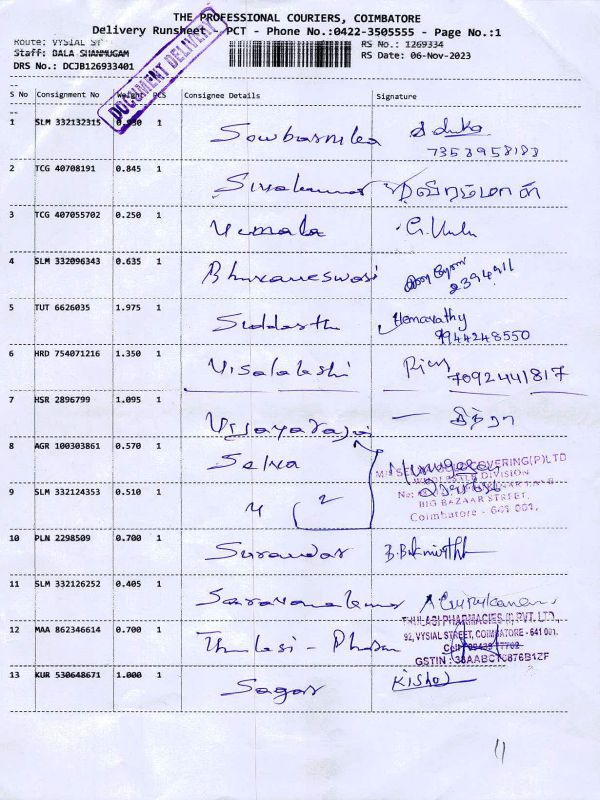 THE PROFESSIONAL COURIERS, COIMBATORE
Delivery Runsheet - PCT - Phone No.:0422-3505555 - Page No.:1
Route: VYSIAL ST
RS No.: 1269334
Staff: DALA SHANMUGAM
RS Date: 06-Nov-2023
DRS No.: DCJB126933401
DOCUMENT DELIVERY
S No Consignment No Weight PCS Consignee Details Signature
1 SLM 332132315 1
7358958183
2 TCG 40708191 0.845 1 Sivakumar
3 TCG 407055702 0.250 1 Vemala
4 SLM 332096343 0.635 1 Bhuvaneswari
2394911
5 TUT 6626035 1.975 1 Siddarth Hemavathy
9944248550
6 HRD 754071216 1.350 1 Visalakshi
7092441817
7 HSR 2896799 1.095 1 Vijayaraja
8 AGR 100303861 0.570 1 Selva
COVERING(P)LTD
WHOLESALE DIVISION
9 SLM 332124353 0.510 1 " 2
BIG BAZAAR STREET,
Coimbatore - 641 001.
10 PLN 2298509 0.700 1
11 SLM 332126252 0.405 1 Saravanakumar
12 MAA 862346614 0.700 1 Thulasi - Pharma
THULASI PHARMACIES (I) PVT. LTD.,
92, VYSIAL STREET, COIMBATORE - 641 001.
13 KUR 530648671 1.000 1 Sagar Kishor
11